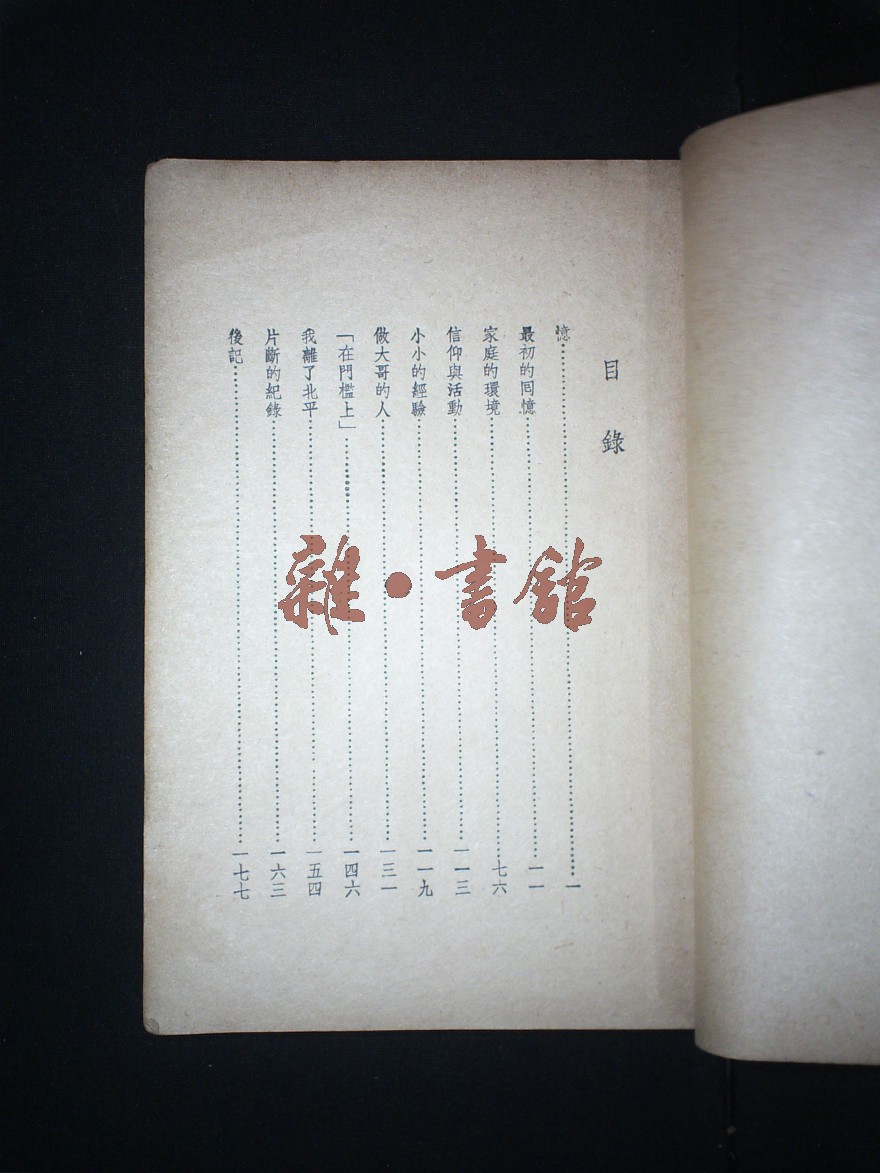 目錄
憶……一
最初的囘憶……一一
家庭的環境……七六
信仰與活動……一一三
小小的經驗……一一九
做大哥的人……一三一
「在門檻上」……一四六
我離了北平……一五四
片斷的紀錄……一六三
後記……一七七
雜·書館